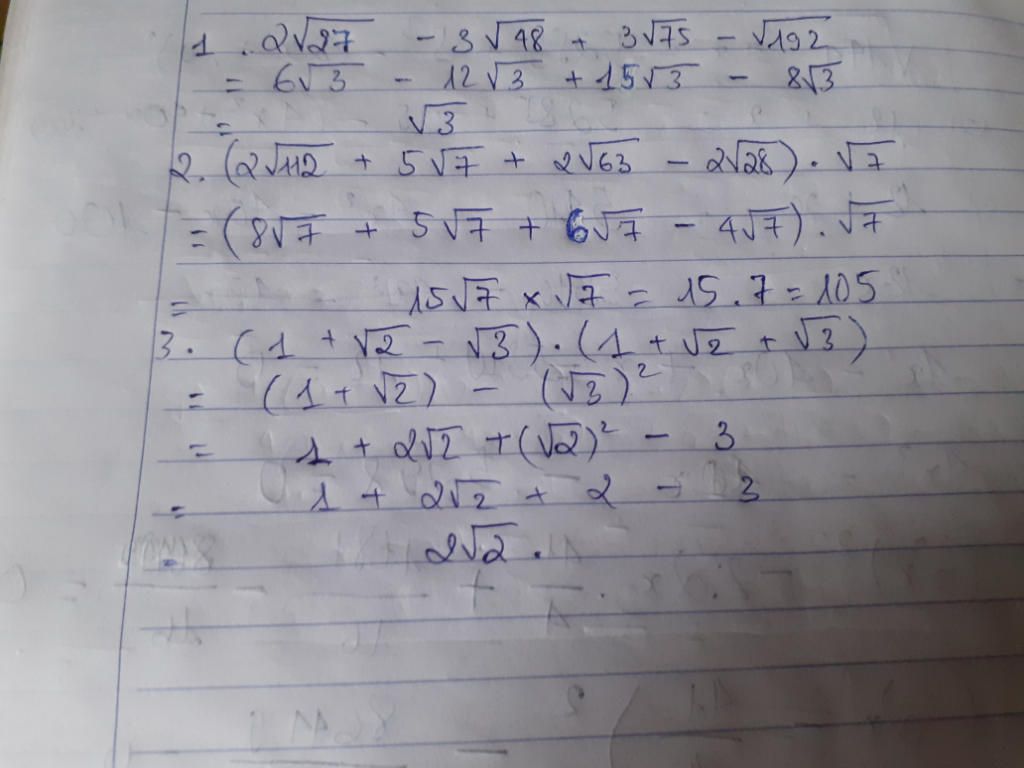 1. 2√27 - 3√48 + 3√75 - √192
= 6√3 - 12√3 + 15√3 - 8√3
= √3
2. (2√112 + 5√7 + 2√63 - 2√28) . √7
= (8√7 + 5√7 + 6√7 - 4√7) . √7
= 15√7 × √7 = 15.7 = 105
3. (1 + √2 - √3) . (1 + √2 + √3)
= (1 + √2) - (√3)²
= 1 + 2√2 + (√2)² - 3
= 1 + 2√2 + 2 - 3
= 2√2 .